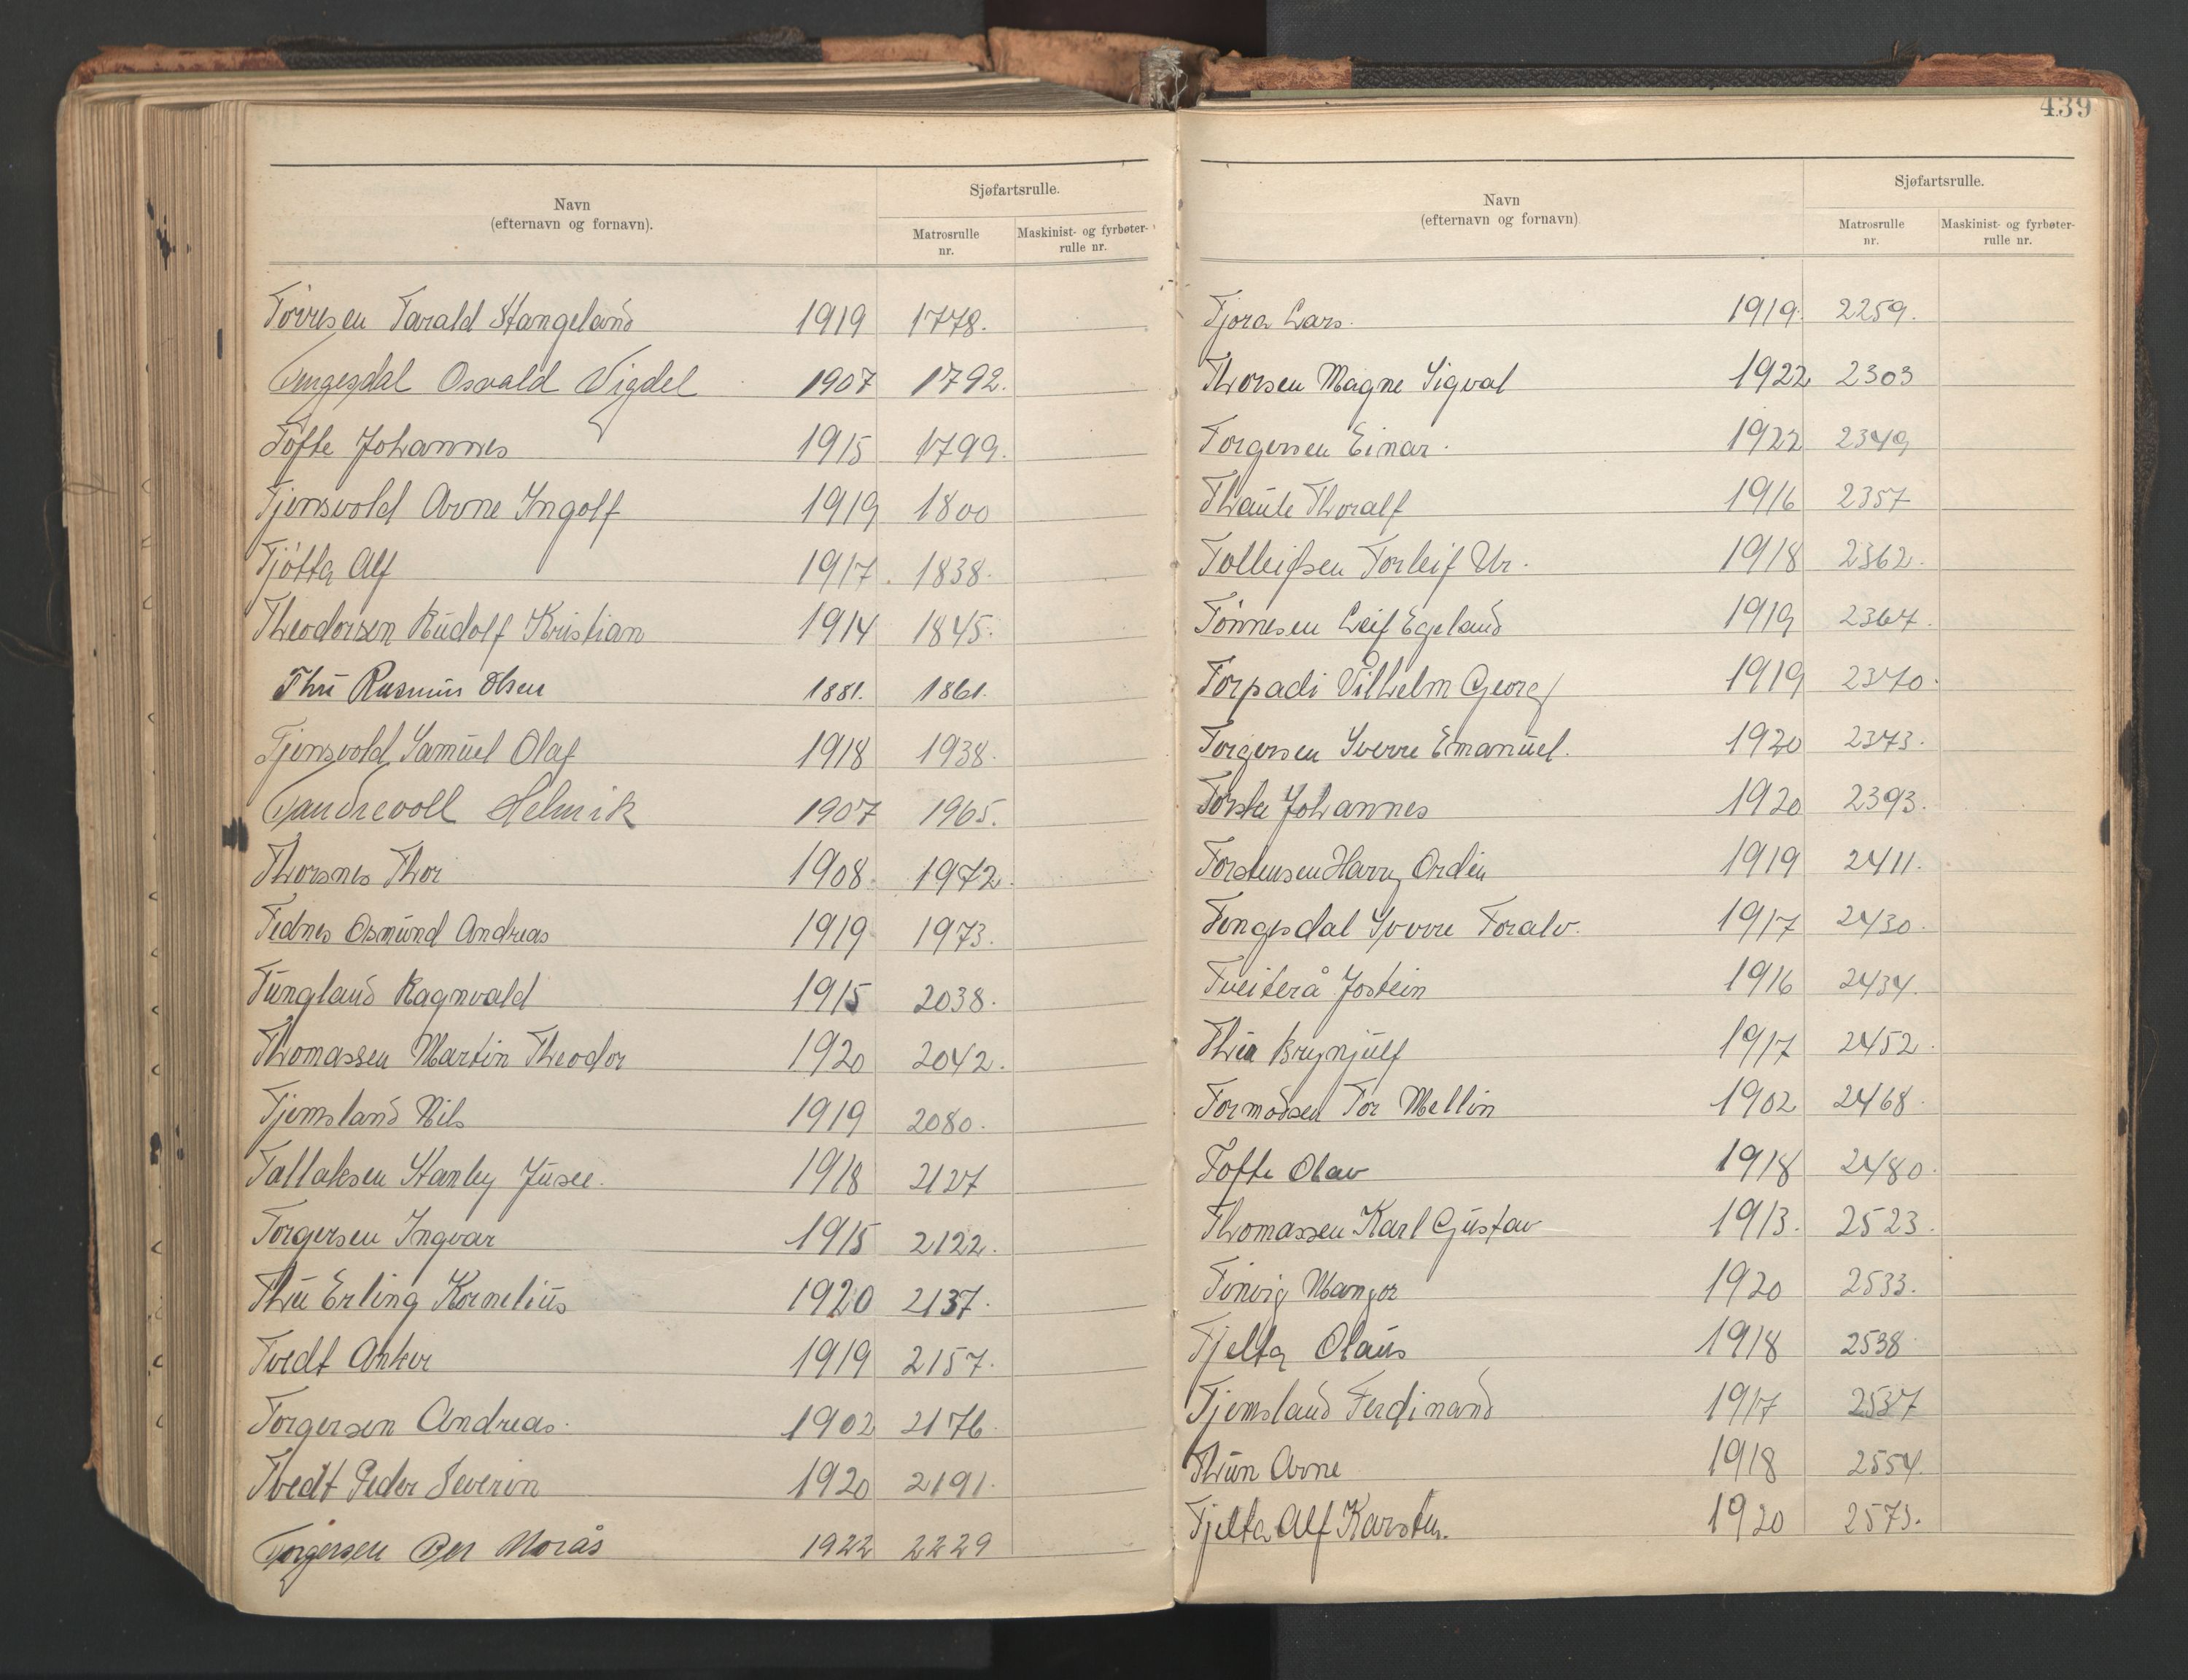 Navn
(efternavn og fornavn).
Sjøfartsrulle.
Matrosrulle nr.
Maskinist- og fyrbøter-rulle nr.
Tørresen Tarald Stangeland 1919 1778.
Tengesdal Osvald Vigdel 1907 1792.
Tofte Johannes 1915 1799.
Tjensvold Arne Ingolf 1919 1800
Tjøtta Alf 1917. 1838.
Theodorsen Rudolf Kristian 1914 1845.
Thu Rasmus Olsen 1881. 1861.
Tjensvold Samuel Olaf 1918 1938.
Tandrevoll Helmik 1907 1965.
Thorsnes Thor 1908. 1972.
Tednes Osmund Andreas 1919 1973.
Tungland Ragnvald 1915 2038.
Thomassen Martin Theodor 1920 2042.
Tjemsland Nils 1919 2080.
Tallaksen Stanley 1918 2127
Torgersen Ingvar 1915 2122.
Thu Erling Kornelius 1920 2137.
Tvedt Anker 1919 2157.
Torgersen Andreas. 1902 2176.
Tvedt Peder Severin 1920 2191.
Torgersen Per Morås 1922 2229
439
Navn
(efternavn og fornavn)
Sjøfartsrulle.
Matrosrulle nr.
Maskinist- og fyrbøter-rulle nr.
Tjora Lars. 1919. 2259.
Thorsen Magne Sigval 1922 2303
Torgersen Einar. 1922 2349
Thaule Thoralf 1916 2357
Tolleifsen Torleif Ur. 1918 2362.
Tønnesen Leif Egeland 1919 2367.
Torpadi Vilhelm Georg 1919 2370.
Torgersen Sverre Emanuel. 1920 2373.
Torske Johannes 1920 2393.
Torstensen Harry Ordin 1919 2411.
Tengesdal Sverre Toralv. 1917 2430.
Tveiterå Jostein 1916 2434.
Brynjulf 1917 2452.
Tormodsen Tor Mellin 1902 2468.
Tofte Olav 1918 2480.
Thomassen Karl Gustav 1913. 2523.
Tinvig Mangor 1920 2533.
Tjelta Olaus 1918 2538
Tjemsland Ferdinand 1917 2537
Thun Arne 1918 2554.
Tjelta Alf Karsten. 1920 2573.